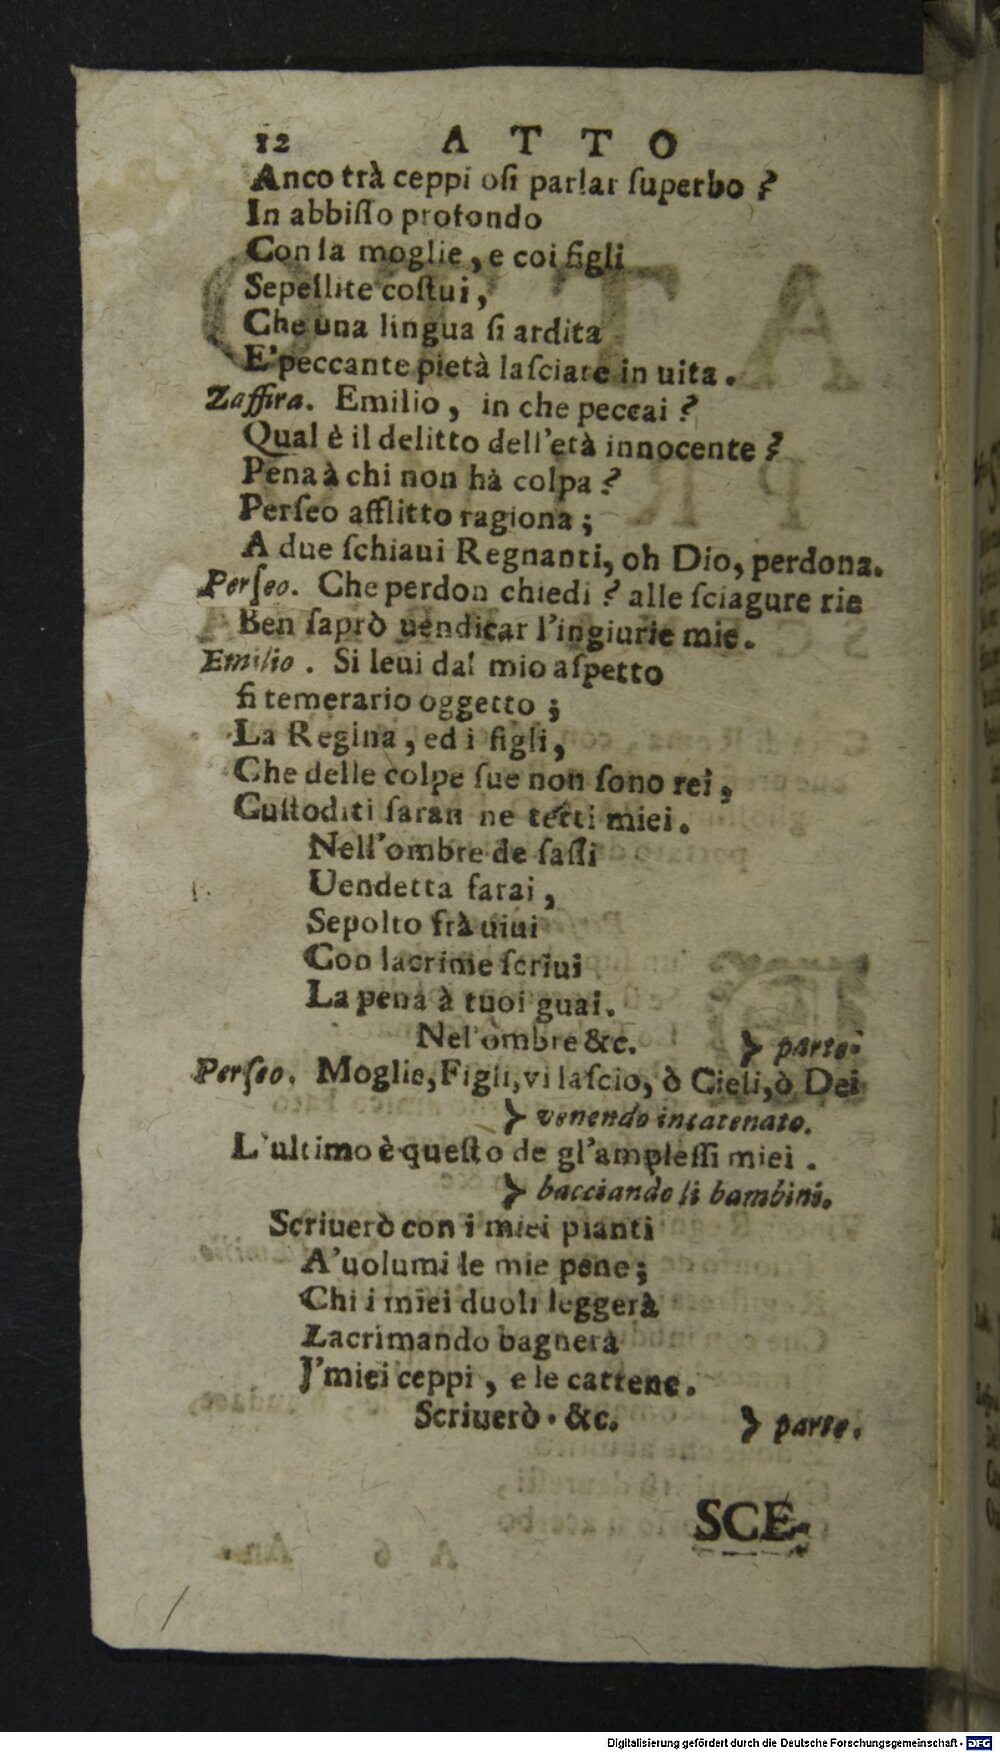 12 ATTO
Anco trà ceppi osi parlar ſuperbo ?
In abbiſſo profondo
Con la moglie, e coi figli
Sepellite coſtui,
Che una lingua ſi ardita
E' peccante pietà laſciare in uita.
Zaffira. Emilio, in che peccai ?
Qual è il delitto dell'età innocente ?
Pena à chi non hà colpa ?
Perſeo afflitto ragiona;
A due ſchiaui Regnanti, oh Dio, perdona.
Perſeo. Che perdon chiedi ? alle ſciagure rie
Ben ſaprò uendicar l'ingiurie mie.
Emilio. Si leui dal mio aſpetto
ſi temerario oggetto;
La Regina, ed i figli,
Che delle colpe ſue non ſono rei,
Cuſtoditi ſaran ne tetti miei.
Nell'ombre de ſaſſi
Uendetta farai,
Sepolto frà uiui
Con lacrime ſcriui
La pena à tuoi guai.
Nel'ombre &c. } parte.
Perſeo. Moglie, Figli, vi laſcio, ò Cieli, ò Dei
} venendo incatenato.
L'ultimo è queſto de gl'ampleſſi miei.
} bacciando li bambini.
Scriuerò con i miei pianti
A'uolumi le mie pene;
Chi i miei duoli leggerà
Lacrimando bagnerà
J'miei ceppi, e le cattene.
Scriuerò. &c. } parte.
SCE-
Digitalisierung gefördert durch die Deutsche Forschungsgemeinschaft - DFG